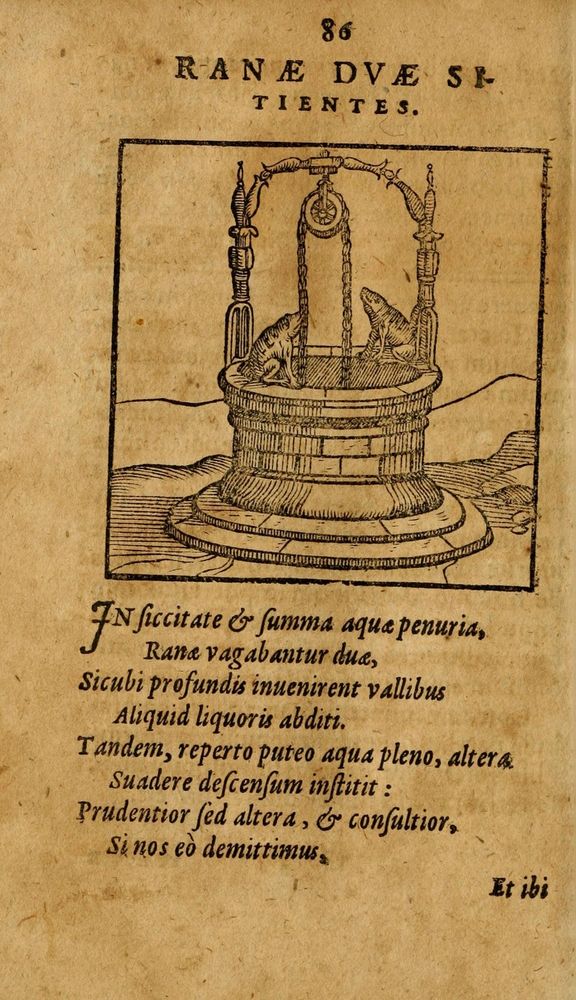 86
RANÆ DVÆ SI-
TIENTES.
IN ſiccitate & ſumma aquæ penuria,
Ranæ vagabantur duæ,
Sicubi profundis inuenirent vallibus
Aliquid liquoris abditi.
Tandem, reperto puteo aqua pleno, altera
Suadere deſcenſum inſtitit :
Prudentior ſed altera, & conſultior,
Si nos eò demittimus,
Et ibi